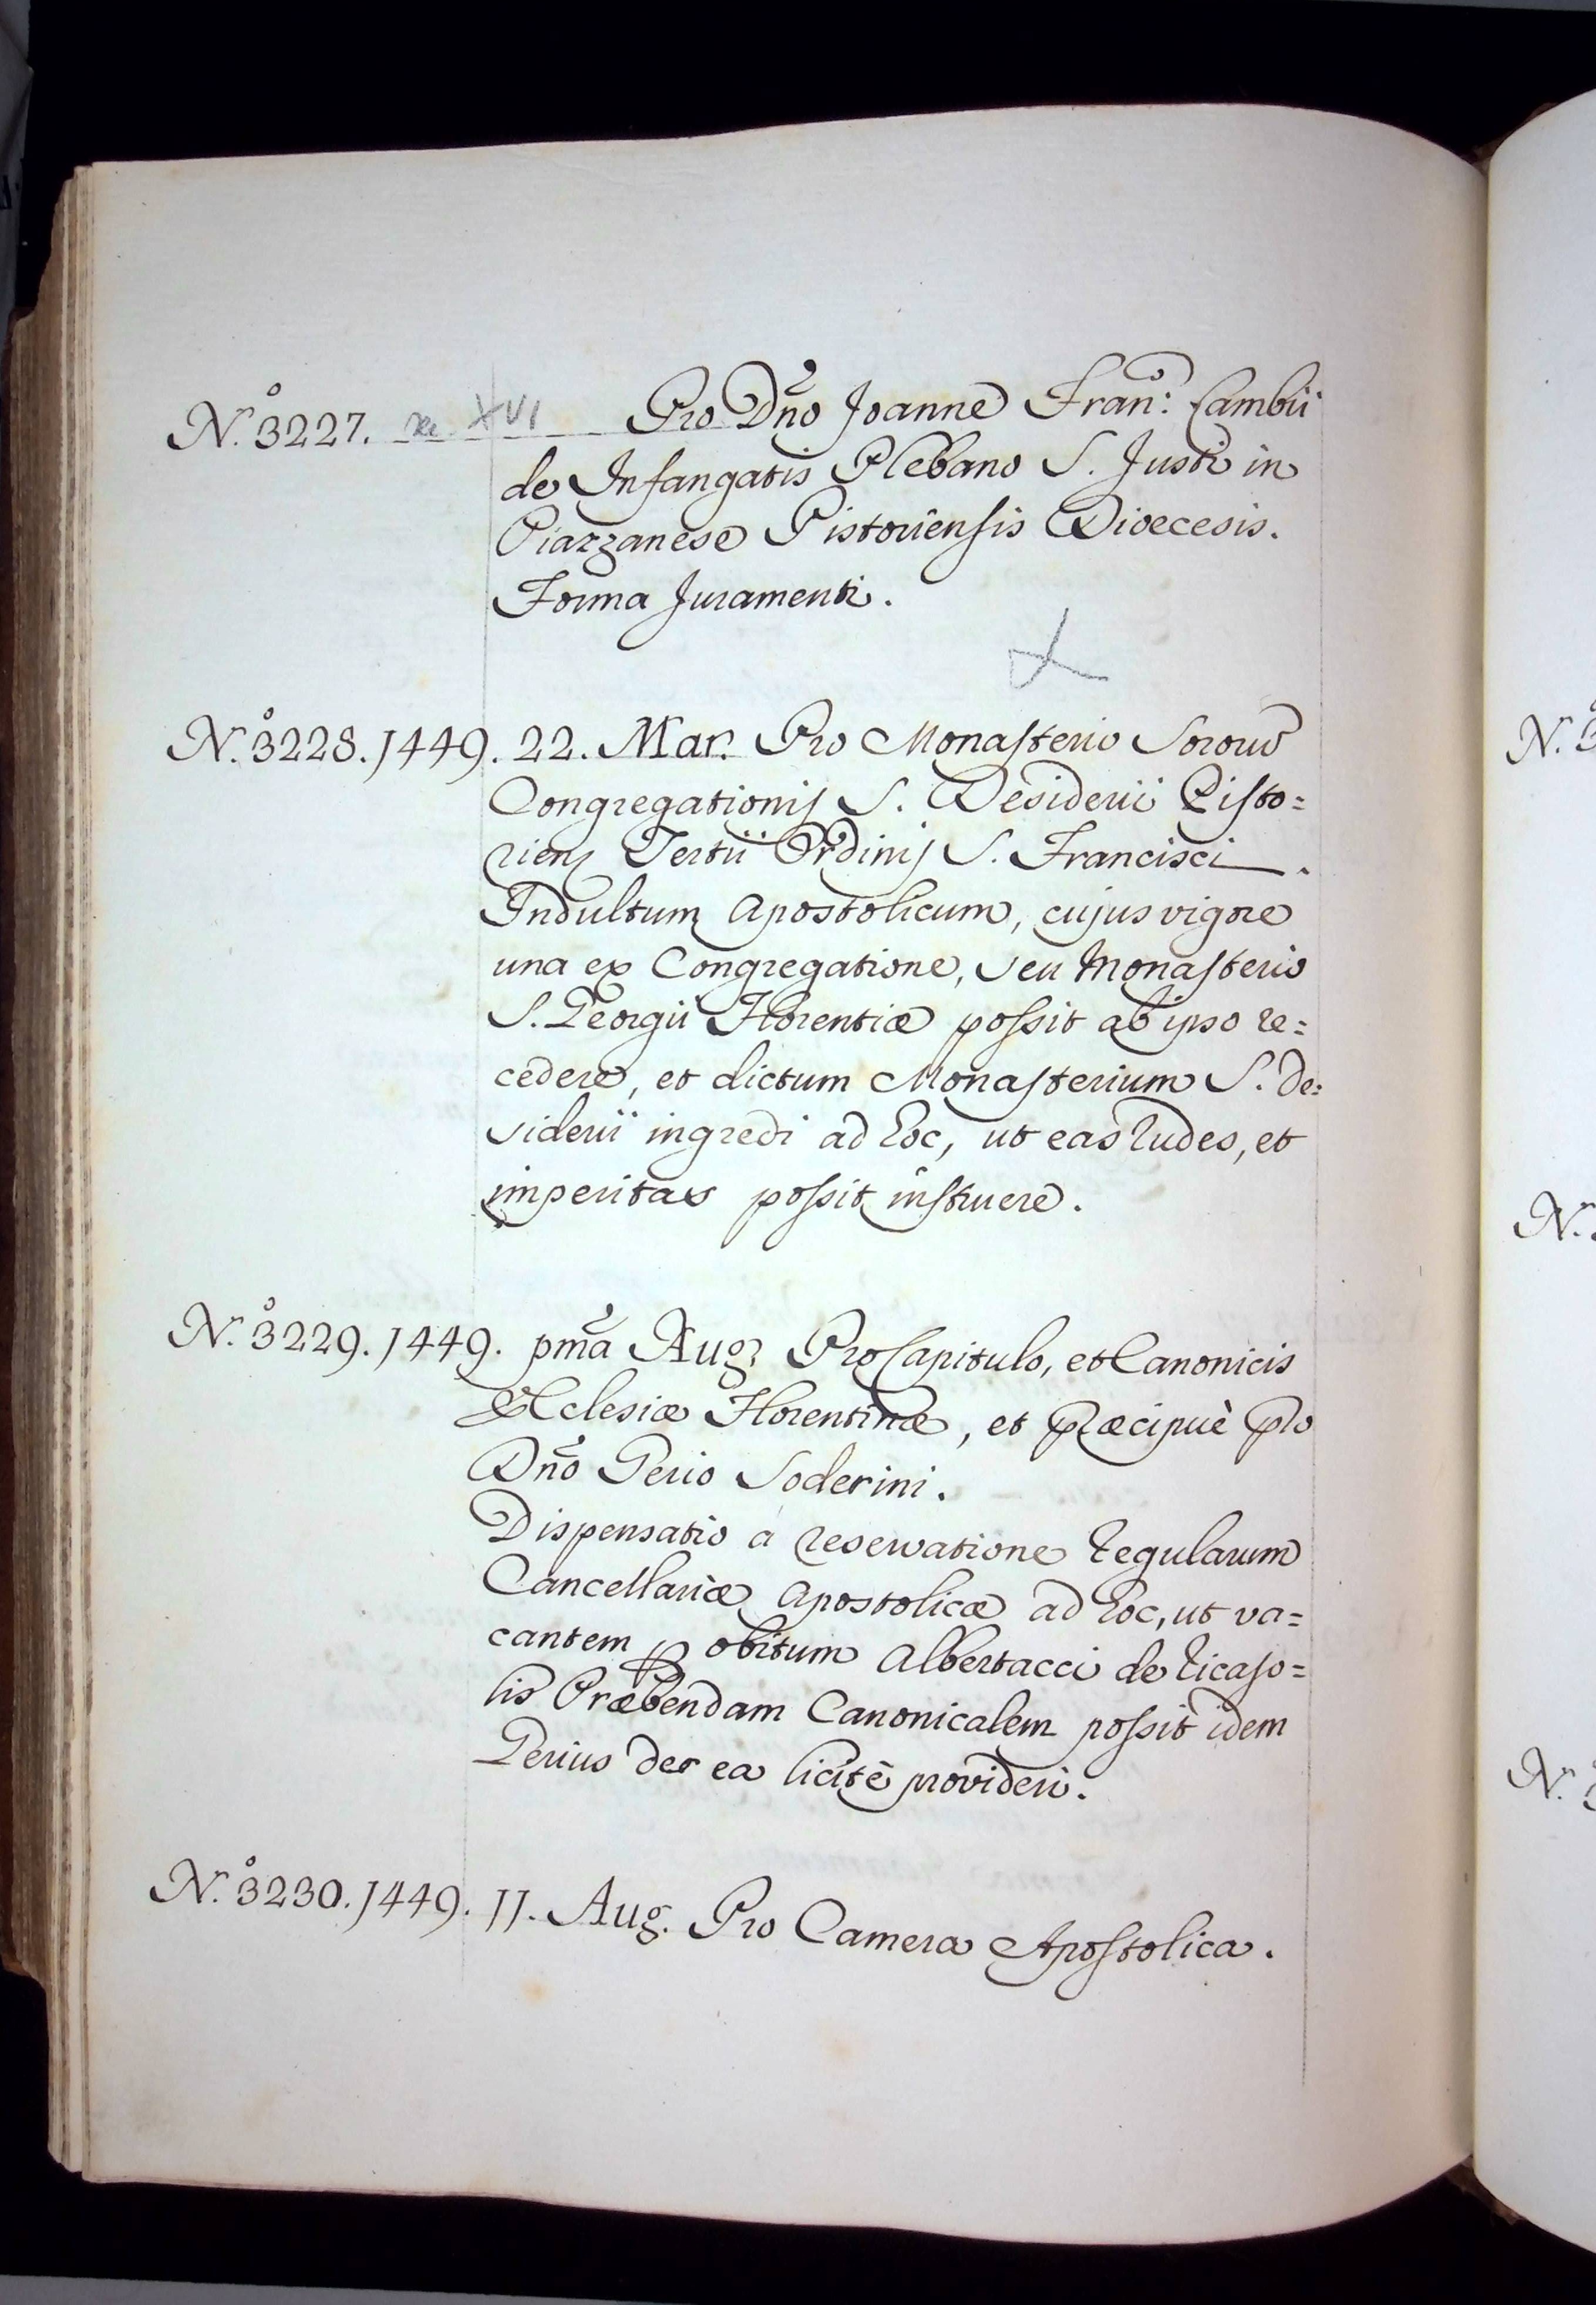 N.º 3227. XVI Pro Dño Joanne Fran: Cambii
de Infangatis Plebano S. Justi in
Piazzanese Pistoriensis Dioecesis.
Forma Juramenti.
N.º 3228. 1449. 22. Mar. Pro Monasterio Soror̃
Congregationis S. Desiderii Pisto=
riens Tertii Ordinis S. Francisci.
Indultum Apostolicum, cujus vigore
una ex Congregatione, seu Monasterio
S. Georgii Florentiæ possit ab ipso re=
cedere, et dictum Monasterium S. De=
siderii ingredi ad hoc, ut eas rudes, et
imperitas possit instruere.
N.º 3229. 1449. pm̃a Aug. Pro Capitulo, et Canonicis
Ecclesiæ Florentinæ, et præcipuè pro
Dño Gerio Soderini.
Dispensatio a reservatione regularum
Cancellariæ Apostolicæ ad hoc, ut va=
cantem p obitum Albertacci de Ricaso=
lis Præbendam Canonicalem possit idem
Gerius de ea licitè provideri.
N.º 3230. 1449. 11. Aug. Pro Camera Apostolica.
N.º 3
N.
N. 3